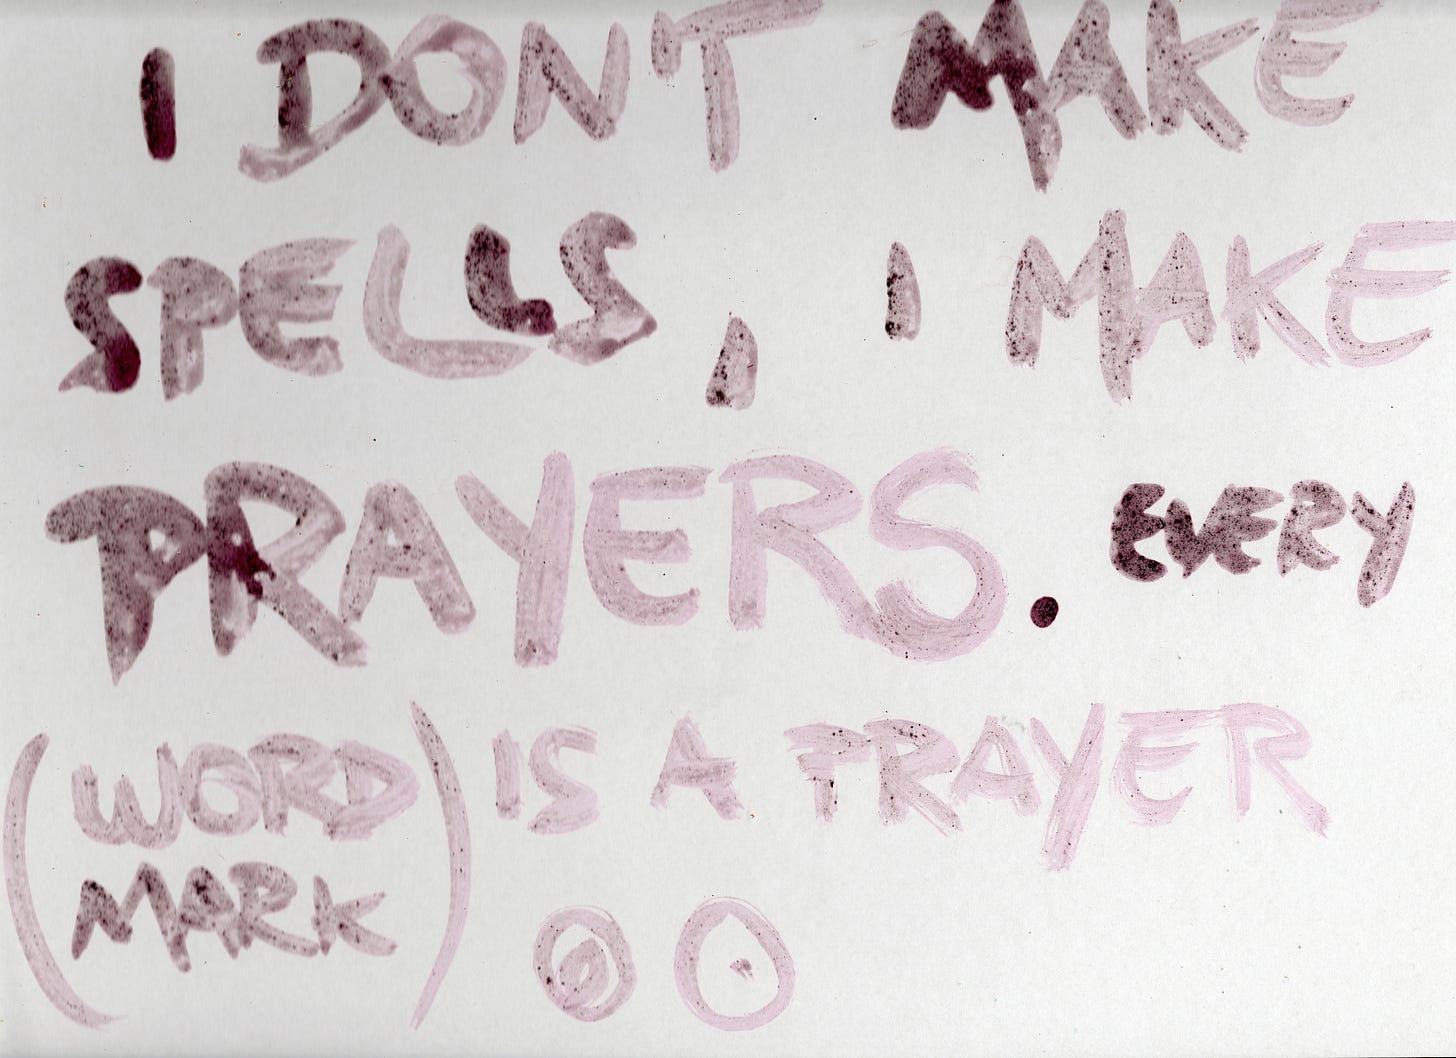 I DONT MAKE
SPELLS, I MAKE
PRAYERS. EVERY
(WORD MARK) IS A PRAYER